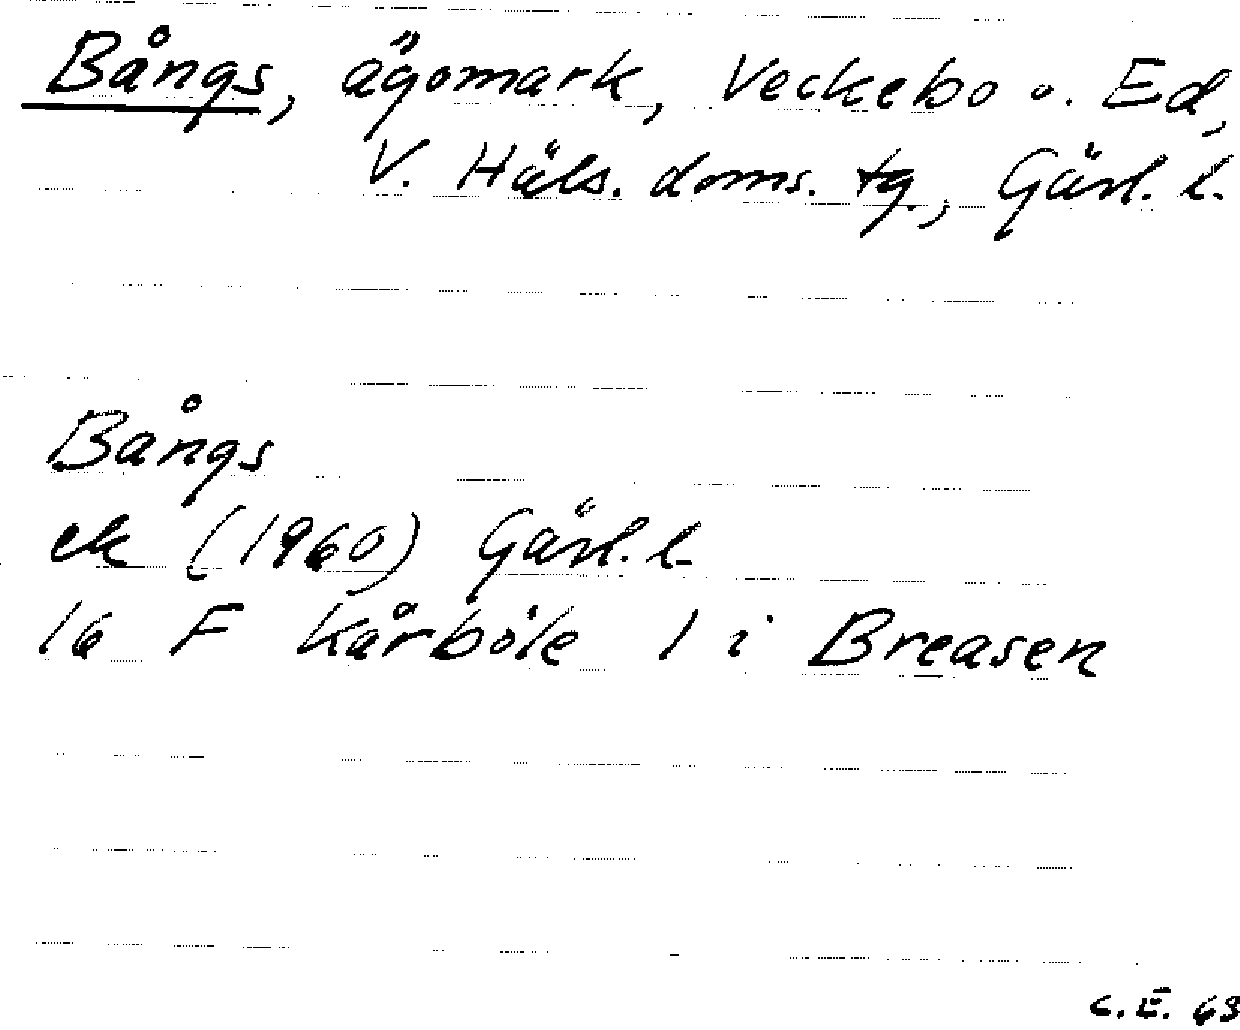 Bångs, ägomark, Veckebo o. Ed,
V. Häls. doms. tg., Gävl. l.
Bångs
ek (1960) Gävl. l.
16 F Kårböle 1 i Breasen
C.E. 63